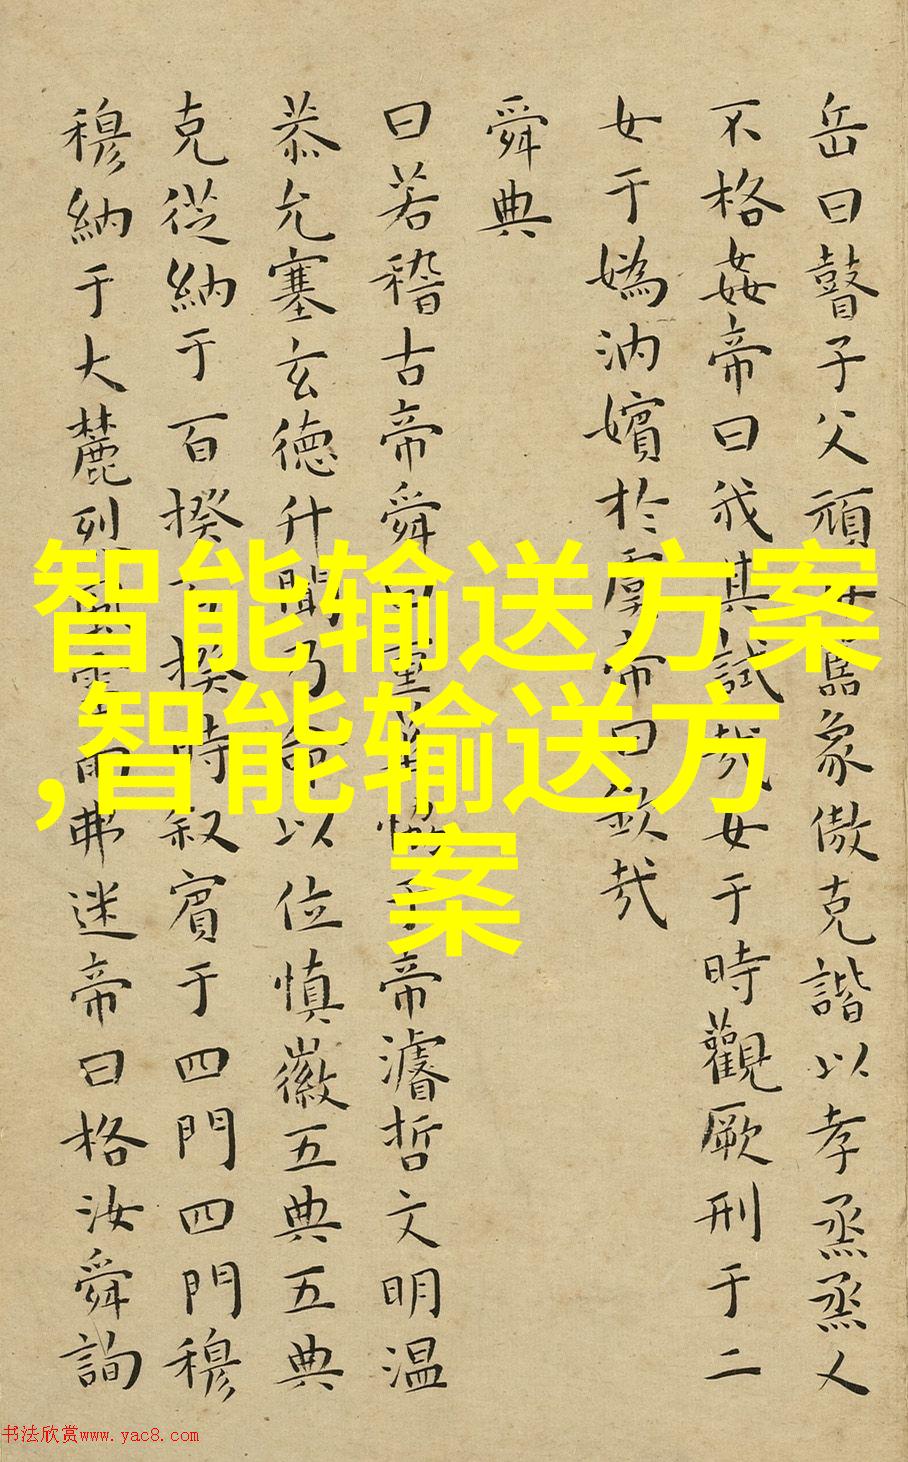 岳曰瞽子父頑母嚚象傲克諧以孝烝烝乂
不格姦帝曰我其試哉女于時觀厥刑于二
女于媯汭嬪於虞帝曰欽哉
舜典
曰若稽古帝舜曰重華協于帝濬哲文明温
恭允塞玄德升聞乃命以位慎徽五典五典
克從納于百揆百揆時叙賓于四門四門穆
穆納于大麓烈風雷雨弗迷帝曰格汝舜詢
智能输送方案
,智能输送方
案
书法欣赏www.yac8.com